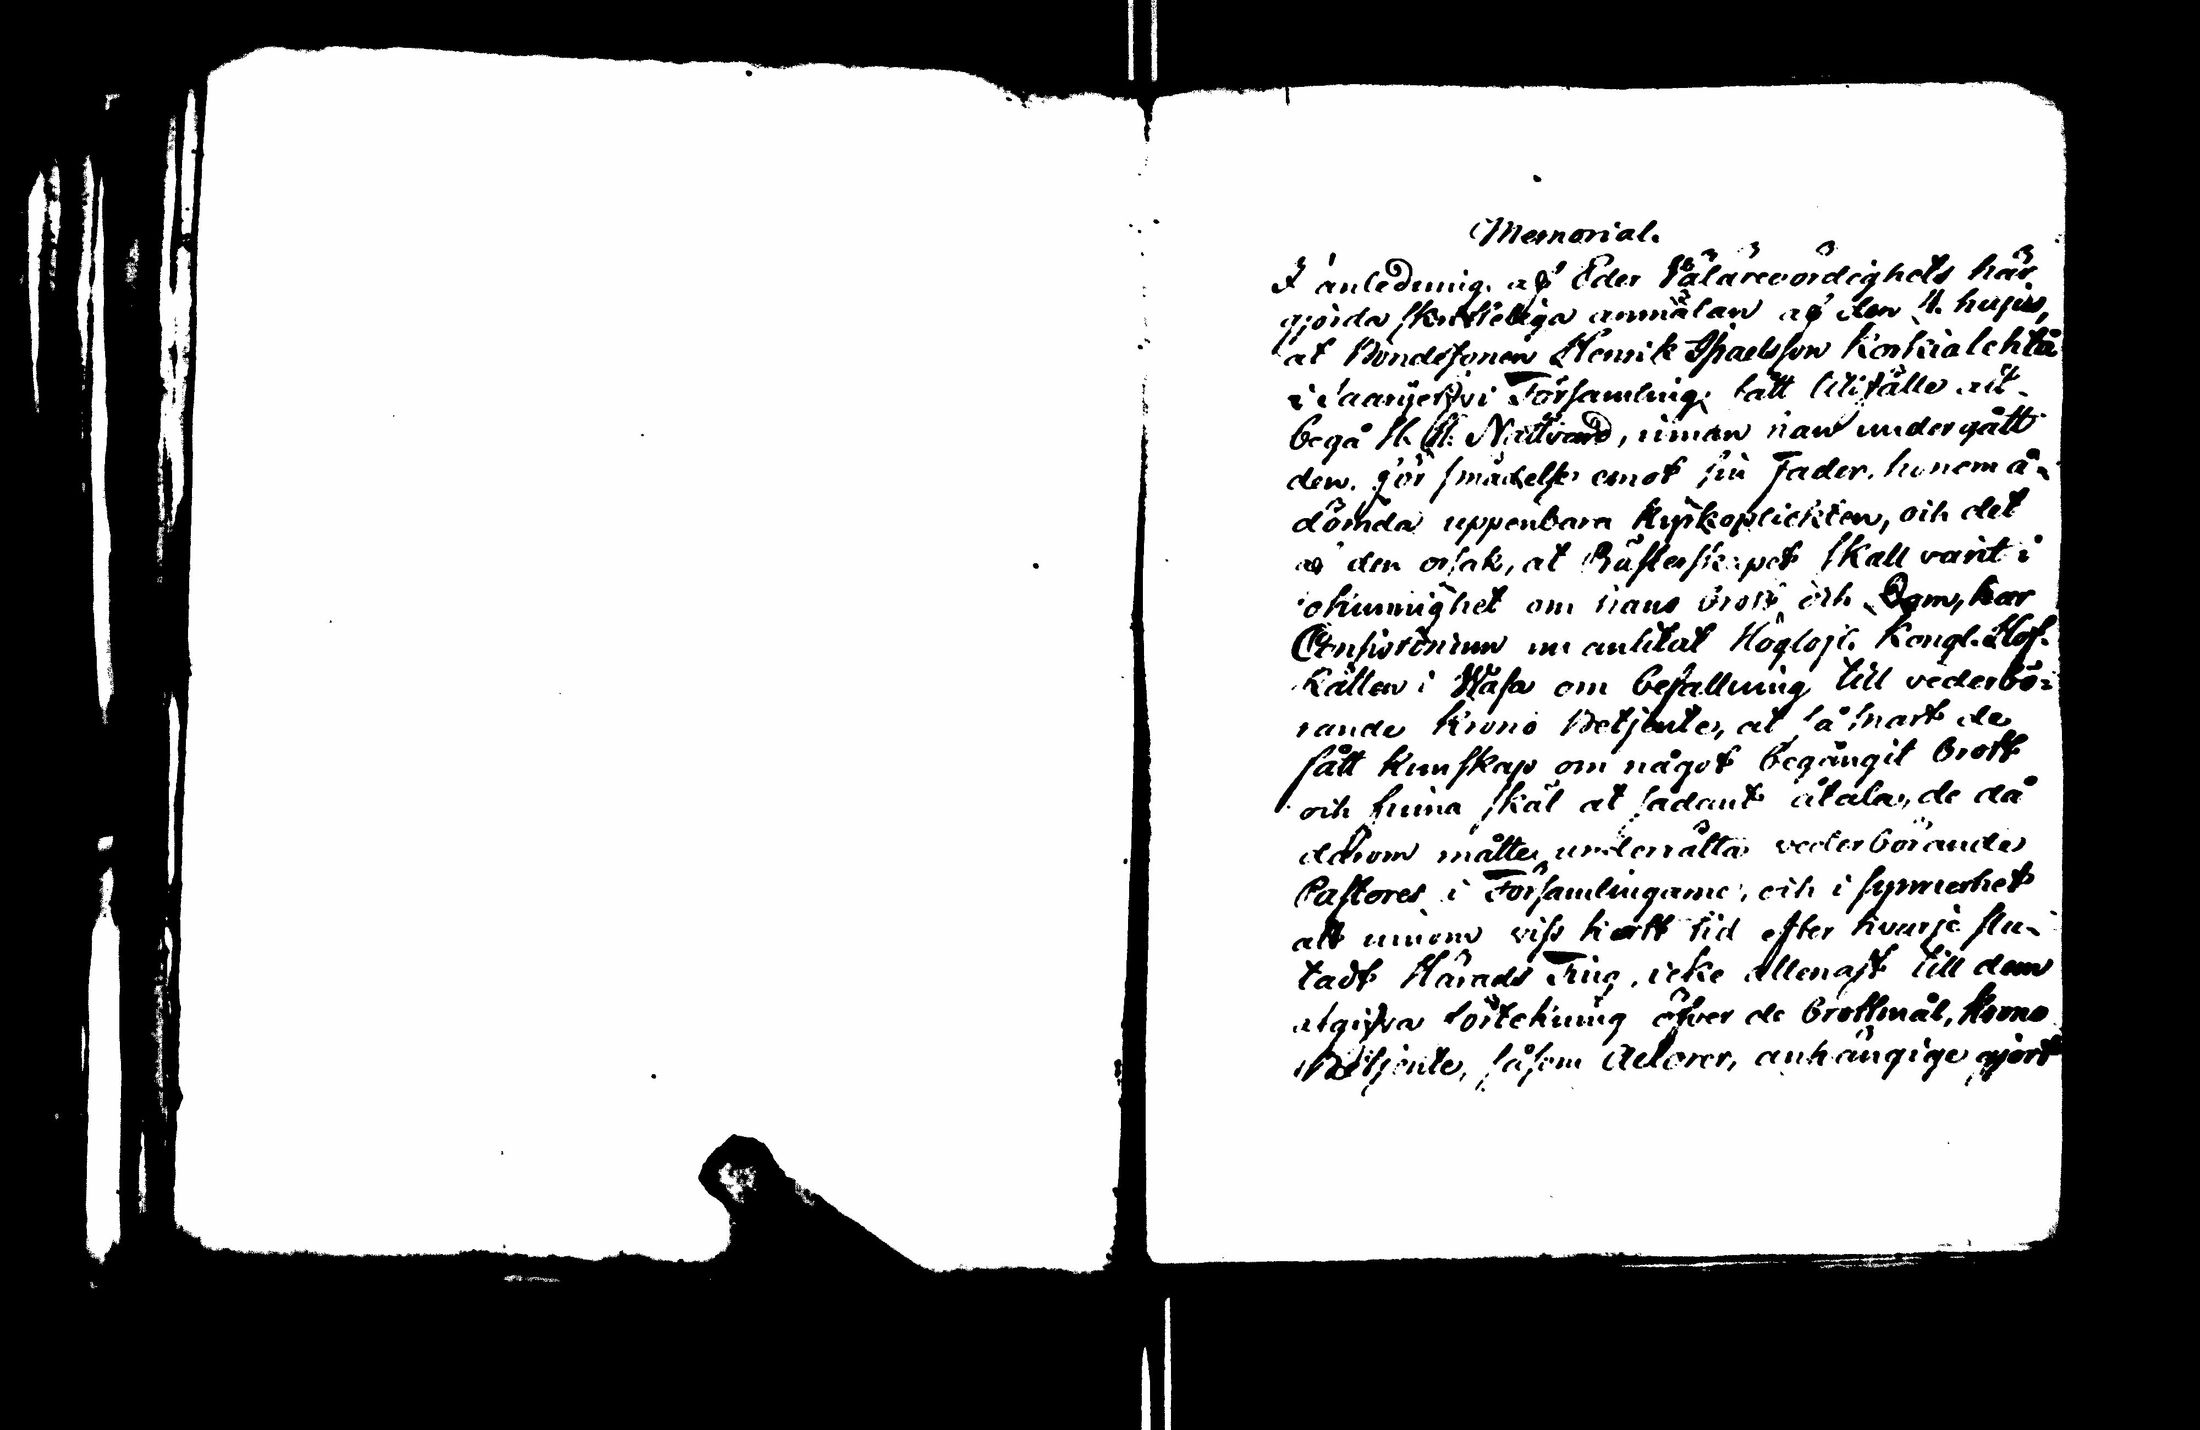 Memorial.
I anledning af Eder Välärevördighets här
gjorda skrifteliga anmälan af den 4. hujus,
at Bondesonen Henrik Isaelsson Koskialehta
i Saarijerfvi Församling, fått tillfälle at
begå H. H. Nattvard, innan han undergått
den för smädelse emot sin Fader honom å-
dömda uppenbara kyrkoplickten, och det
af den orsak, at Prästerskapet skall varit i
okunnighet om hans brott och Dom, har
Consistorium nu anlitat Höglofl. Kongl. Hof-
Rätten i Wasa om befallning till vederbö-
rande Krono Betjente, at så snart de
fått kunskap om något begångit brott
och finna skäl at sådant åtala, de då
därom måtte underrätta vederbörande
Pastores i Församlingarne, och i synnerhet
att innom viss kort tid efter hvarje slu-
tadt Härads Ting, icke allenast till dem
afgifva förtekning öfver de brottmål, Krono
Betjente, såsom Actorer, anhängige gjort